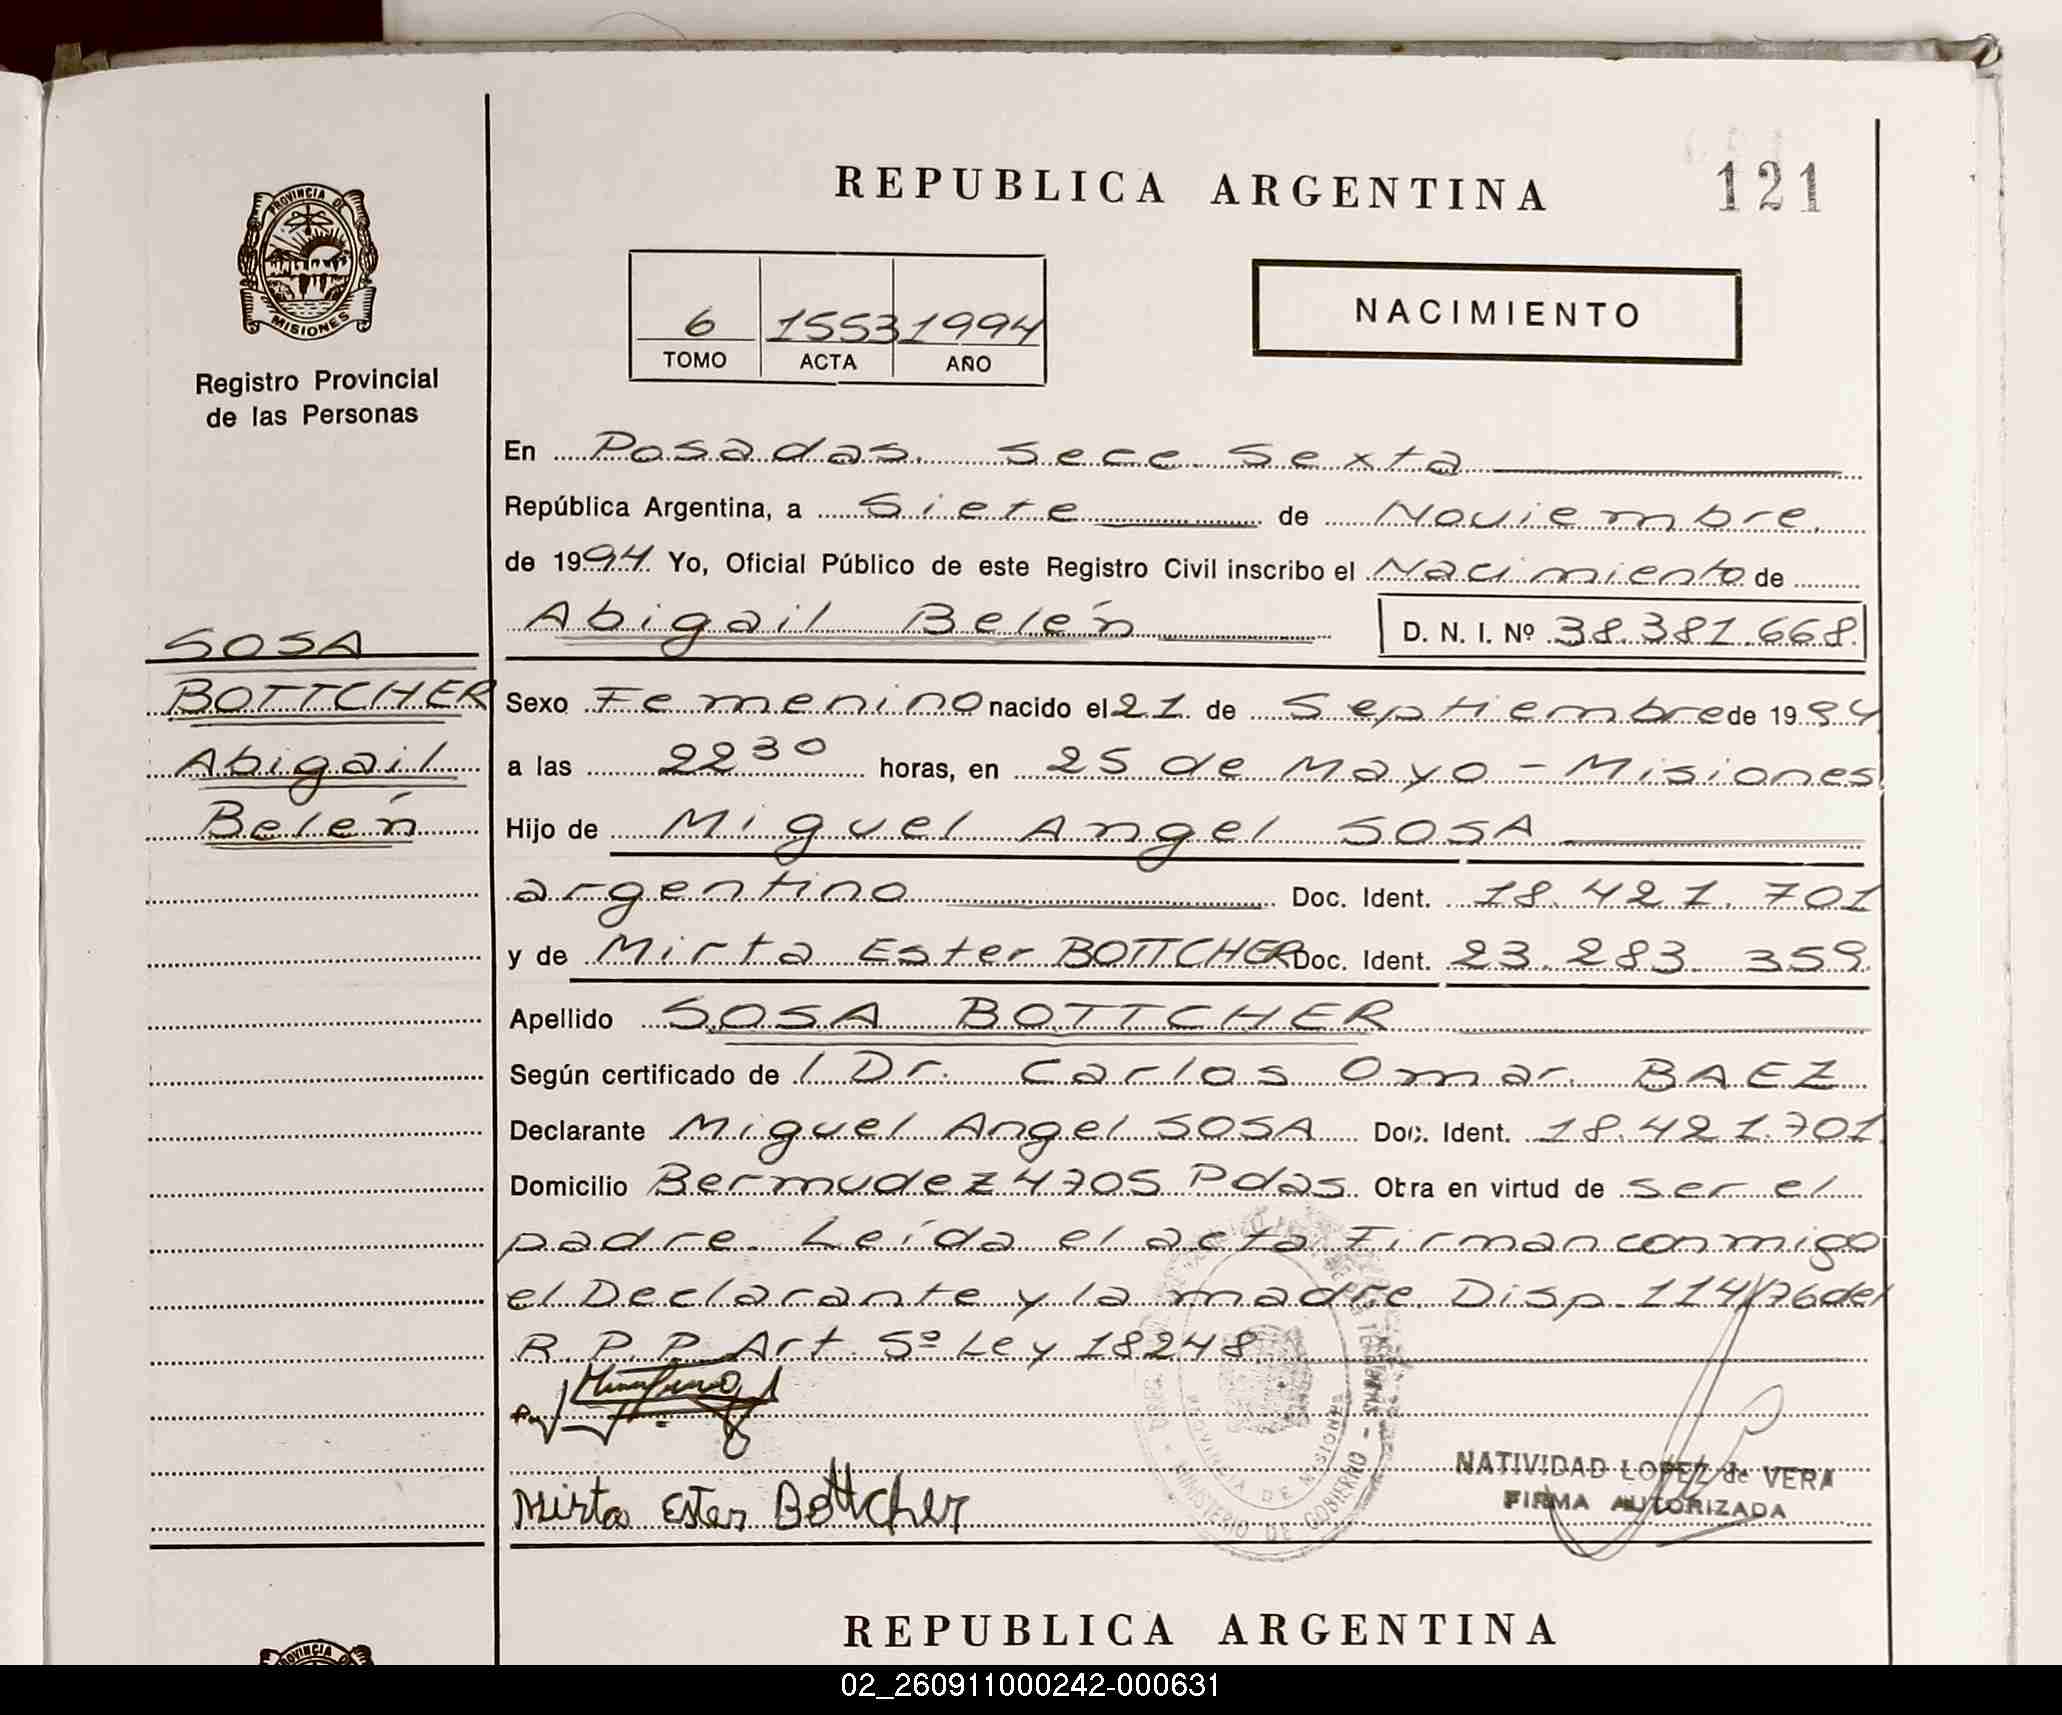 REPUBLICA ARGENTINA
121
PROVINCIA DE
MISIONES
Registro Provincial
de las Personas
6 1553 1994
TOMO ACTA AÑO
NACIMIENTO
En Posadas. Secc Sexta
República Argentina, a Siete de Noviembre.
de 1994. Yo, Oficial Público de este Registro Civil inscribo el Nacimiento de
Abigail Belén D. N. I. Nº 38.381.668.
SOSA
BOTTCHER
Abigail
Belén
Sexo Femenino nacido el 21 de Septiembre de 1994
a las 22 30 horas, en 25 de Mayo - Misiones
Hijo de Miguel Angel SOSA
argentino Doc. Ident. 18.421.701
y de Mirta Ester BOTTCHER Doc. Ident. 23.283.359
Apellido SOSA BOTTCHER
Según certificado de l Dr. Carlos Omar BAEZ
Declarante Miguel Angel SOSA Doc. Ident. 18.421.701
Domicilio Bermudez 4705 Pdas. Obra en virtud de ser el
padre. Leída el acta Firman conmigo
el Declarante y la madre. Disp. 114/76 del
R.P.P. Art. 5º Ley 18248
Mirta Ester Bottcher
PROVINCIA DE MISIONES
MINISTERIO DE GOBIERNO
NATIVIDAD LOPEZ de VERA
FIRMA AUTORIZADA
REPUBLICA ARGENTINA
PROVINCIA DE
02_260911000242-000631